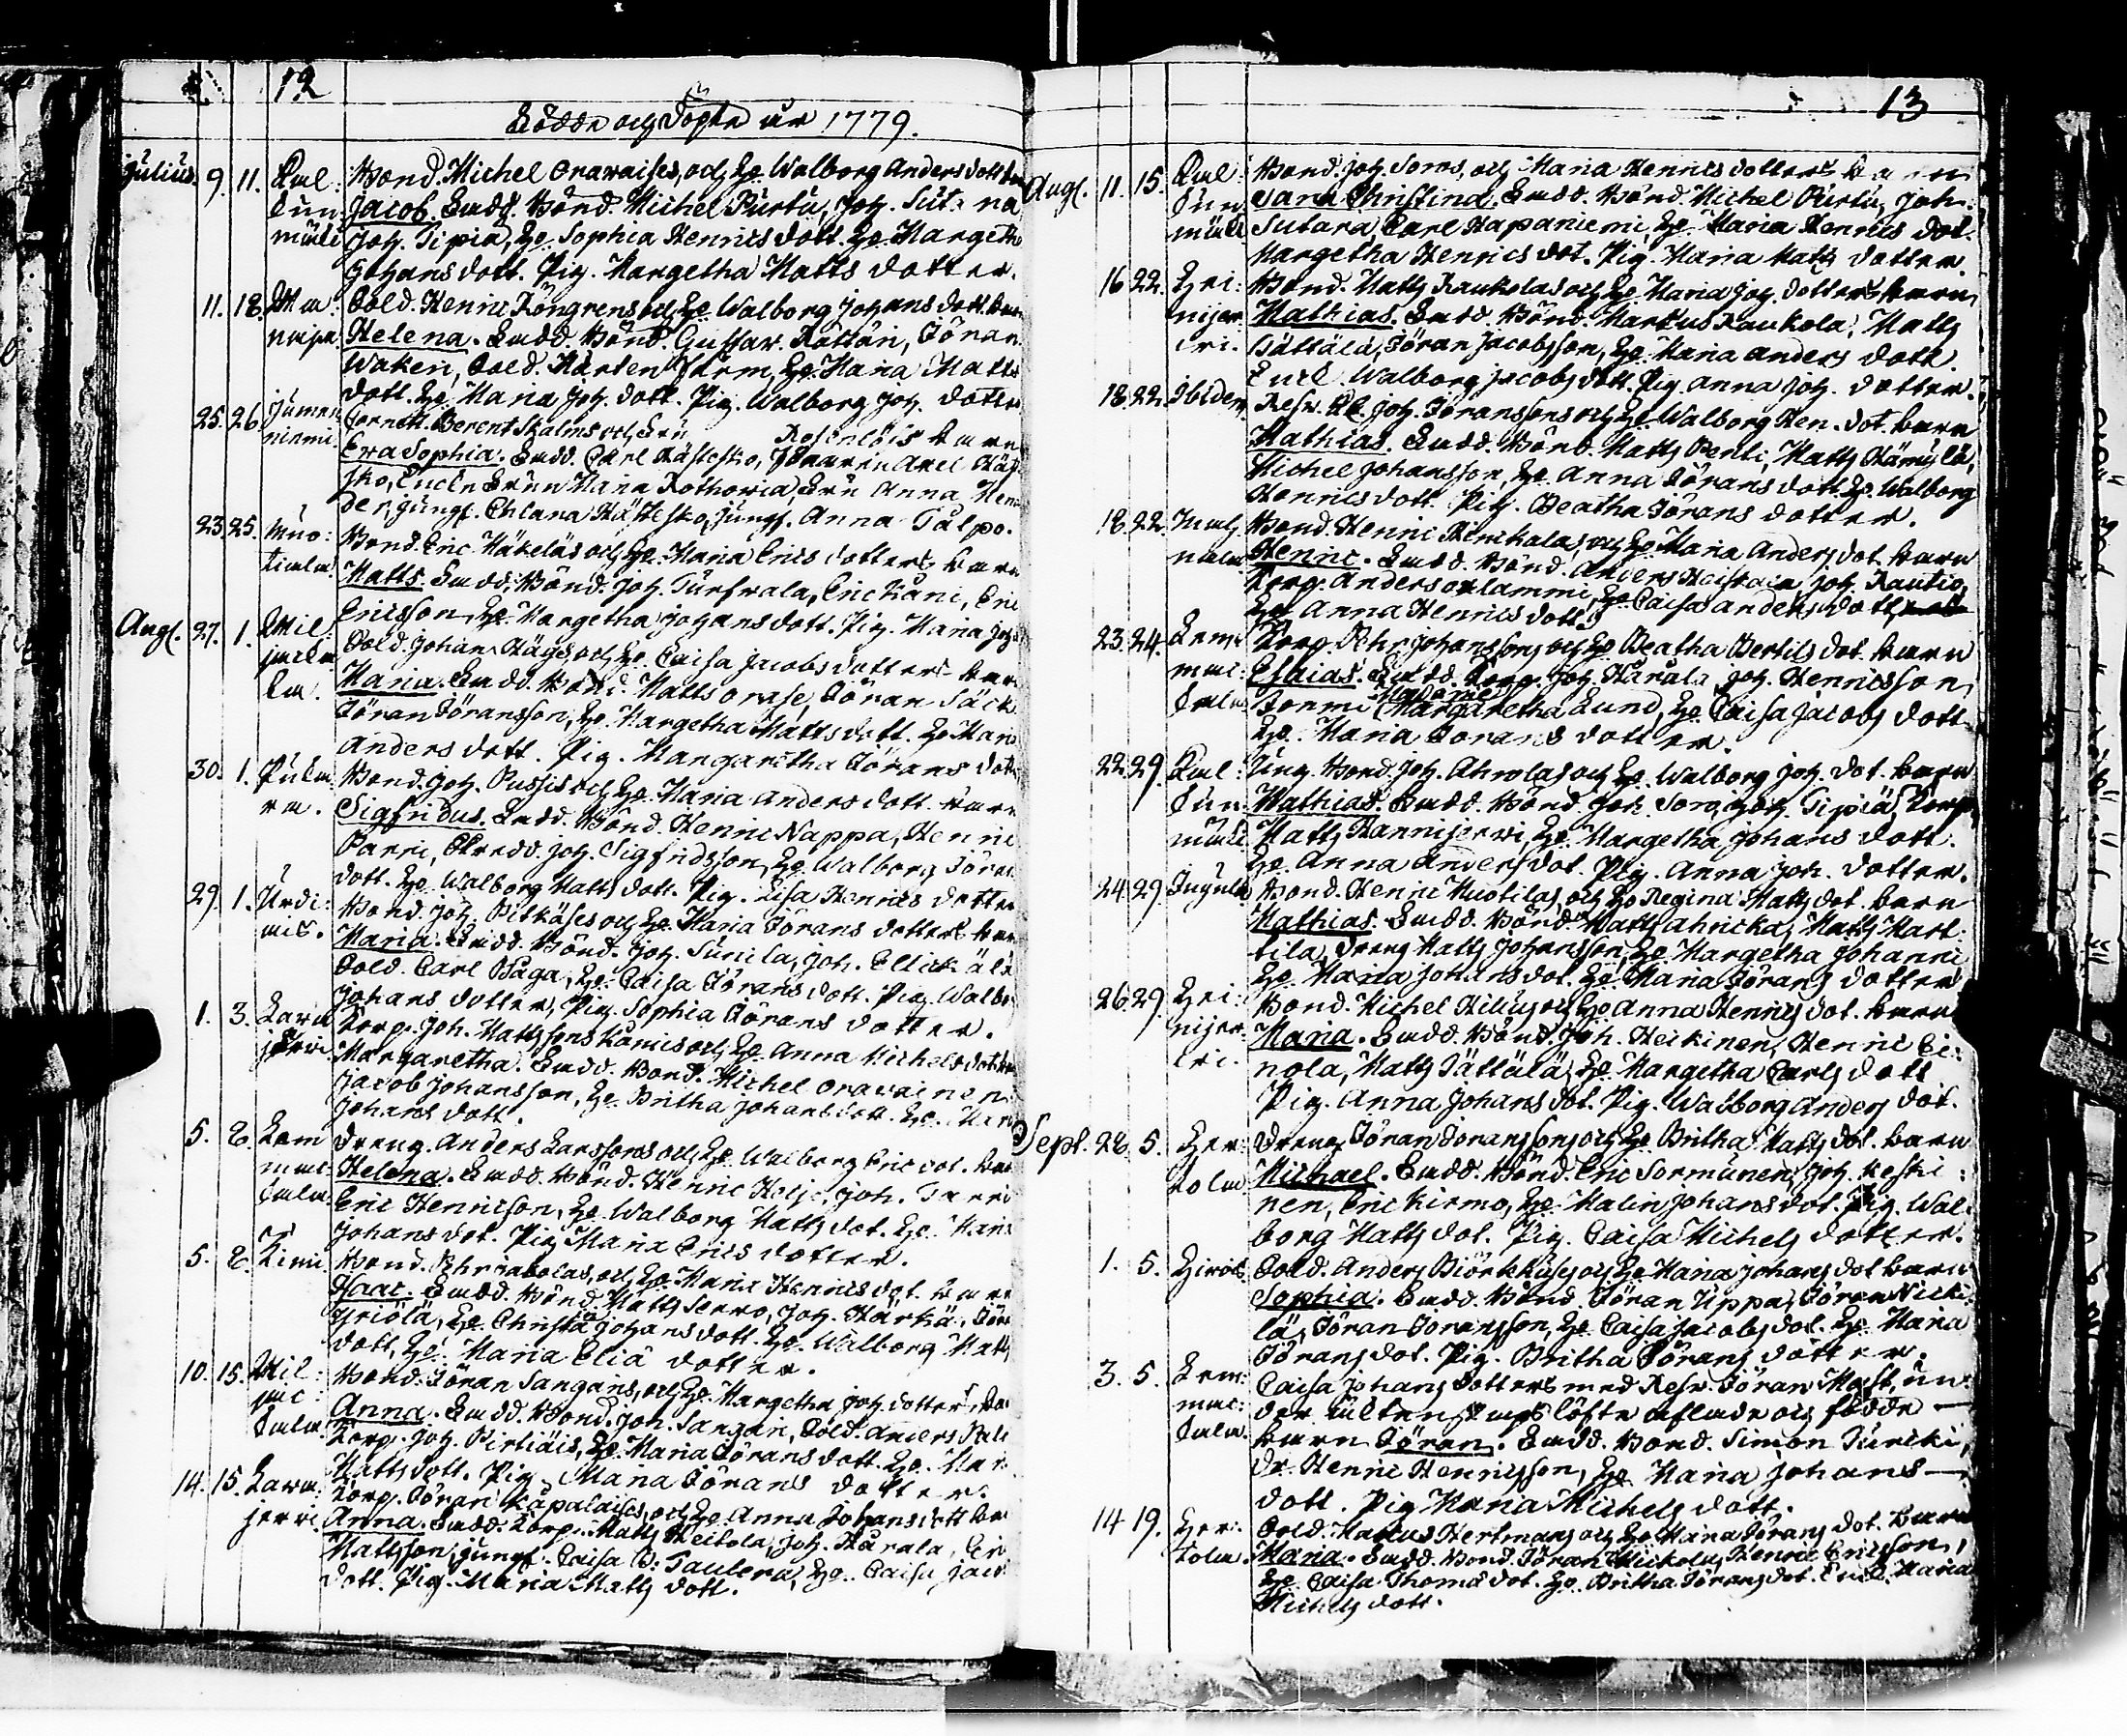 12
Födde och Döpte år 1779.
Julius. 9. 11. Kal: Bond. Michel Oravaises, och Hu. Walborg Anders dott.
Jun Jacob. Fadd. Bönd. Michel Purtu, Joh. Sut na
mäki Joh. Sipiä, Hu. Sophia Henrics dott. Hu. Margeth
Johans dott. Pig. Margetha Matts dotter.
11. 18. Sold. Henric Röngrens och Hu. Walborg Johans dott. barn
Helena. Fadd. Bönd. Gustav. Rättäri, Jöran
Wakeri, Sold. Mårten Storm, Hu. Maria Matts
dott. Hu. Maria Joh. dott. Pig. Walborg Joh. dotter
25. 26. Jumen Cornett. Berent Skalms och Fru Rosenlöfs barn
niemi Eva Sophia. Fadd. Carl Hästesko, Axel Häs
sko, Fru Anna
der, Jungf. Hästesko, Jungf. Anna Tålpo.
23. 25. Muo: Bond. Eric Mäkeläs och Hu. Maria Erics dotters barn
Matts. Fadd. Bönd. Joh. Turfwala, Eric Käni, Eric
Ericsson, Hu. Margetha Johans dott. Pig. Maria Joh.
Augl. 27. 1. Wil: Sold. Johan Hägs, och Hu. Caisa Jacobs dotters barn
Maria. Fadd. Bönd. Matts Orase, Jöran Säck
Jöran Jöransson, Hu. Margetha Matts dott. Hu. Mar
Anders dott. Pig. Margaretha Jörans dott
30. 1. Bond. Joh. Pussis och Hu. Maria Anders dott. barn
ra. Sigfridus. Fadd. Bönd. Henric Nappa, Henric
Parri, Joh. Sigfridsson, Hu. Walborg Jöran
dott. Hu. Walborg Matts dott. Pig. Lisa Henrics dotter
29. 1. Urdi: Bond. Joh. Pitkäses och Hu. Maria Jörans dotters
Maria. Fadd. Bönd. Joh. Sunila, Joh. Ellickälä
Sold. Carl Båga, Hu. Caisa Jörans dott. Pig. Walbo
Johans dotter, Pig. Sophia Jörans dotter.
1. 3. Lava Korp. Joh. Mattssons Känics och Hu. Anna Michels dot.
jerwi Margaretha. Fadd. Bond. Michel Oravainen
Jacob Johansson, Hu. Britha Johans dott. Hu. Mar
Johans dott.
5. 8. Kam Dreng. Anders Larssons och Hu. Walborg Eric dot.
mar Helena. Fadd. Bönd. Henric Holje, Joh. Parri
Eric Henricson, Hu. Walborg Matts dot. Hu. Mar
Johans dot. Pig Maria Erics dotter.
5. 8. Kimi Bond. och Hu. Maria Henrics dot. barn
Isaac. Fadd. Bönd. Matts Serro, Joh. Härkä, Jör
Yriölä, Hu. Christa Johans dott. Hu. Walborg Matts
dott, Hu. Maria Eliä dotter.
10. 15. Wil: Bond. Jöran Sangais, och Hu. Margetha Joh. dotters
Anna. Fadd. Bond. Joh. Sangari, Sold. Anders
Korp. Joh. Pirtiäis, Hu. Maria Jörans dott. Hu. Mar
Matts dott. Pig Maria Jörans dotter.
14. 15. Lava: Korp. Jöran Kapalaises, och Hu. Anna Johans dott
jerwi Anna. Fadd. Korp. Matts Heitola, Joh. Härala, Eri
Mattsson, Jungf. Caisa B. Taulera, Hu. Caisa Jaco
dott. Pig. Maria Matts dott.
13
Augl. 11. 15. Kal: Bond. Joh. Soros, och Maria Henrics dotters barn
Jun Sara Christina. Fadd. Bönd. Michel Purtu, Joh:
mäki Sutara, Carl Hapaniemi, Hu. Maria Henrics dot.
Margetha Henrics dot. Pig. Maria Matts dotter.
16 22. Hei: Bond. Matts Raukolas och Hu. Maria Joh. dotters barn
nijer Mathias. Fadd. Bönd. Markus Raukola, Matts
vri. Jättälä, Jöran Jacobsson, Hu. Maria Anders dott.
Enck. Walborg Jacobs dott. Pig. Anna Joh. dotter.
18 22. Ibidem Resv. Joh. Jöranssons och Hu. Walborg Hen. dot. barn
Mathias. Fadd. Bönd. Matts Penti, Matts Hämylä,
Michel Johansson, Hu. Anna Jörans dott. Hu. Walborg
Henrics dott. Pig. Beatha Jörans dotter.
18 22. Bond. Henric Henckalas och Hu. Maria Anders dot. barn
Henric. Fadd. Bönd. Anders Joh. Rautio,
Korp. Anders Oxlammi, Hu. Caisa Anders dott
Hu. Anna Henrics dott.
23. 24. Kem: Korp. Pehr Johanssons och Hu. Beatha Bertils dot. barn
mac: Esaias. Fadd. Korp. Joh. Härala, Joh. Henricsson
Madame
Bonmi Margaretha Lund, Hu. Caisa Jacobs dott
Hu. Maria Jorans dotter.
22. 29. Kal: Ung. Bond. Joh. Ahvolas och Hu. Walborg Joh. dot. barn
Jun Mathias. Fadd. Bönd. Joh. Soro, Joh. Sipiä, Korp.
mäki Matts Hannijervi, Hu. Margetha Johans dott.
Hu. Anna Anders dot. Pig. Anna Joh. dotter.
24. 29 Bond. Henric Muotilas, och Hu Regina Matts dot. barn
Mathias. Fadd. Bönd. Matts Ahvicka, Matts Mart
tila, Dreng Matts Johansson, Hu. Margetha Johanni
Hu. Maria Johans dot. Hu. Maria Jörans dotter
26. 29. Hei: Bond. Michel Hilluis och Hu Anna Henrics dot. barn
nijer Maria. Fadd. Bönd. Joh. Heikinen, Henric Ei:
vri. nola, Matts Jättälä, Hu. Margetha Carls dott
Pig. Anna Johans dot. Pig. Walborg Anders dot.
Sept. 28. 5. Her: Dreng Jöran Joranssons och Hu Britha Matts dot. barn
tola Michael. Fadd. Bönd. Eric Sormunen, Joh. Keski:
nen, Eric Kirmo, Hu. Malin Johans dot. Pig. Wal:
borg Matts dot. Pig. Caisa Michels dotter.
1. 5. Sold. Anders Biörkhuses och Hu Maria Johans dot barn
Sophia. Fadd. Bönd. Jöran Uppa, Jöran Nicki
lä, Jöran Joransson, Hu. Caisa Jacobs dot. Hu. Maria
Jörans dot. Pig. Britha Jörans dotter.
3. 5. Kem: Caisa Johans dotters med Resv. Jöran Mast, un:
mac: der ächtenskaps löfte aflade och födde —
barn Jöran. Fadd. Bond. Simon Turcki,
Dr. Henric Henricsson, Hu. Maria Johans —
dott. Pig Maria Michels dott.
14 19. Her: Sold. Markus Hertmans och Hu Maria Jörans dot. barn
tola. Maria. Fadd. Bond. Jöran Mickola, Henric Ericsson,
Hu. Caisa Thomä dot. Hu. Britha Jörans dot. Enck. Maria
Michels dott.